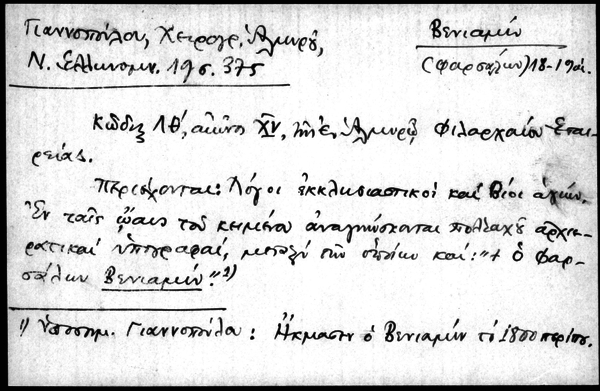 Γιαννοπούλου, Χειρογρ. Ἁλμυροῦ,
Ν. Ἑλληνομν. 19 σ. 375
Βενιαμίν
(Φαρσάλων) 18-19 αἰ.
Κῶδιξ ΛΘ´, αἰῶνος XV, τῆς ἐν Ἁλμυρῷ Φιλαρχαίου Ἑται-
ρείας.
Περιέχονται: Λόγοι ἐκκλησιαστικοί καί Βίοι ἁγίων.
Ἐν ταῖς ᾤαις τοῦ κειμένου ἀναγινώσκονται πολλαχοῦ ἀρχιε-
ρατικαί ὑπογραφαί, μεταξύ τῶν ὁποίων καί: "+ ὁ Φαρ-
σάλων Βενιαμίν." 1)
1) Ὑποσημ. Γιαννοπούλου: Ἤκμασεν ὁ Βενιαμίν τό 1800 περίπου.